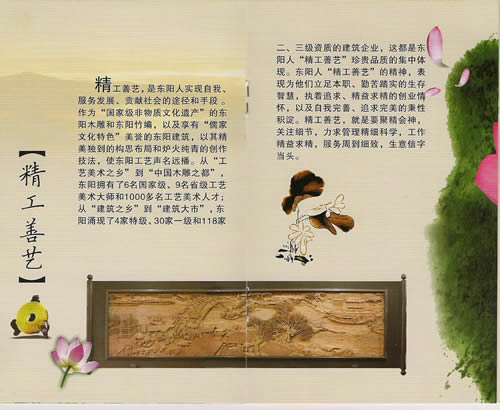 【精工善艺】
精工善艺，是东阳人实现自我、
服务发展、贡献社会的途径和手段。
作为“国家级非物质文化遗产”的东
阳木雕和东阳竹编，以及享有“儒家
文化特色”美誉的东阳建筑，以其精
美独到的构思布局和炉火纯青的创作
技法，使东阳工艺声名远播。从“工
艺美术之乡”到“中国木雕之都”，
东阳拥有了6名国家级、9名省级工艺
美术大师和1000多名工艺美术人才；
从“建筑之乡”到“建筑大市”，东
阳涌现了4家特级、30家一级和118家
二、三级资质的建筑企业，这都是东
阳人“精工善艺”珍贵品质的集中体
现。东阳人“精工善艺”的精神，表
现为他们立足本职、勤苦踏实的生存
智慧，执着追求、精益求精的创业情
怀，以及自我完善、追求完美的秉性
积淀。精工善艺，就是要聚精会神，
关注细节，力求管理精细科学，工作
精益求精，服务周到细致，生意信字
当头。